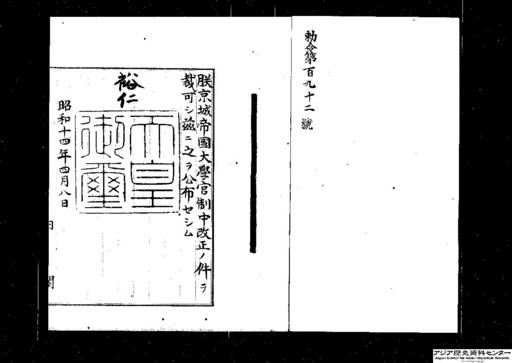 勅令第百九十二號
朕京城帝國大學官制中改正ノ件ヲ
裁可シ茲ニ之ヲ公布セシム
裕仁
天皇
御璽
昭和十四年四月八日
内閣
アジア歴史資料センター
Japan Center for Asian Historical Records